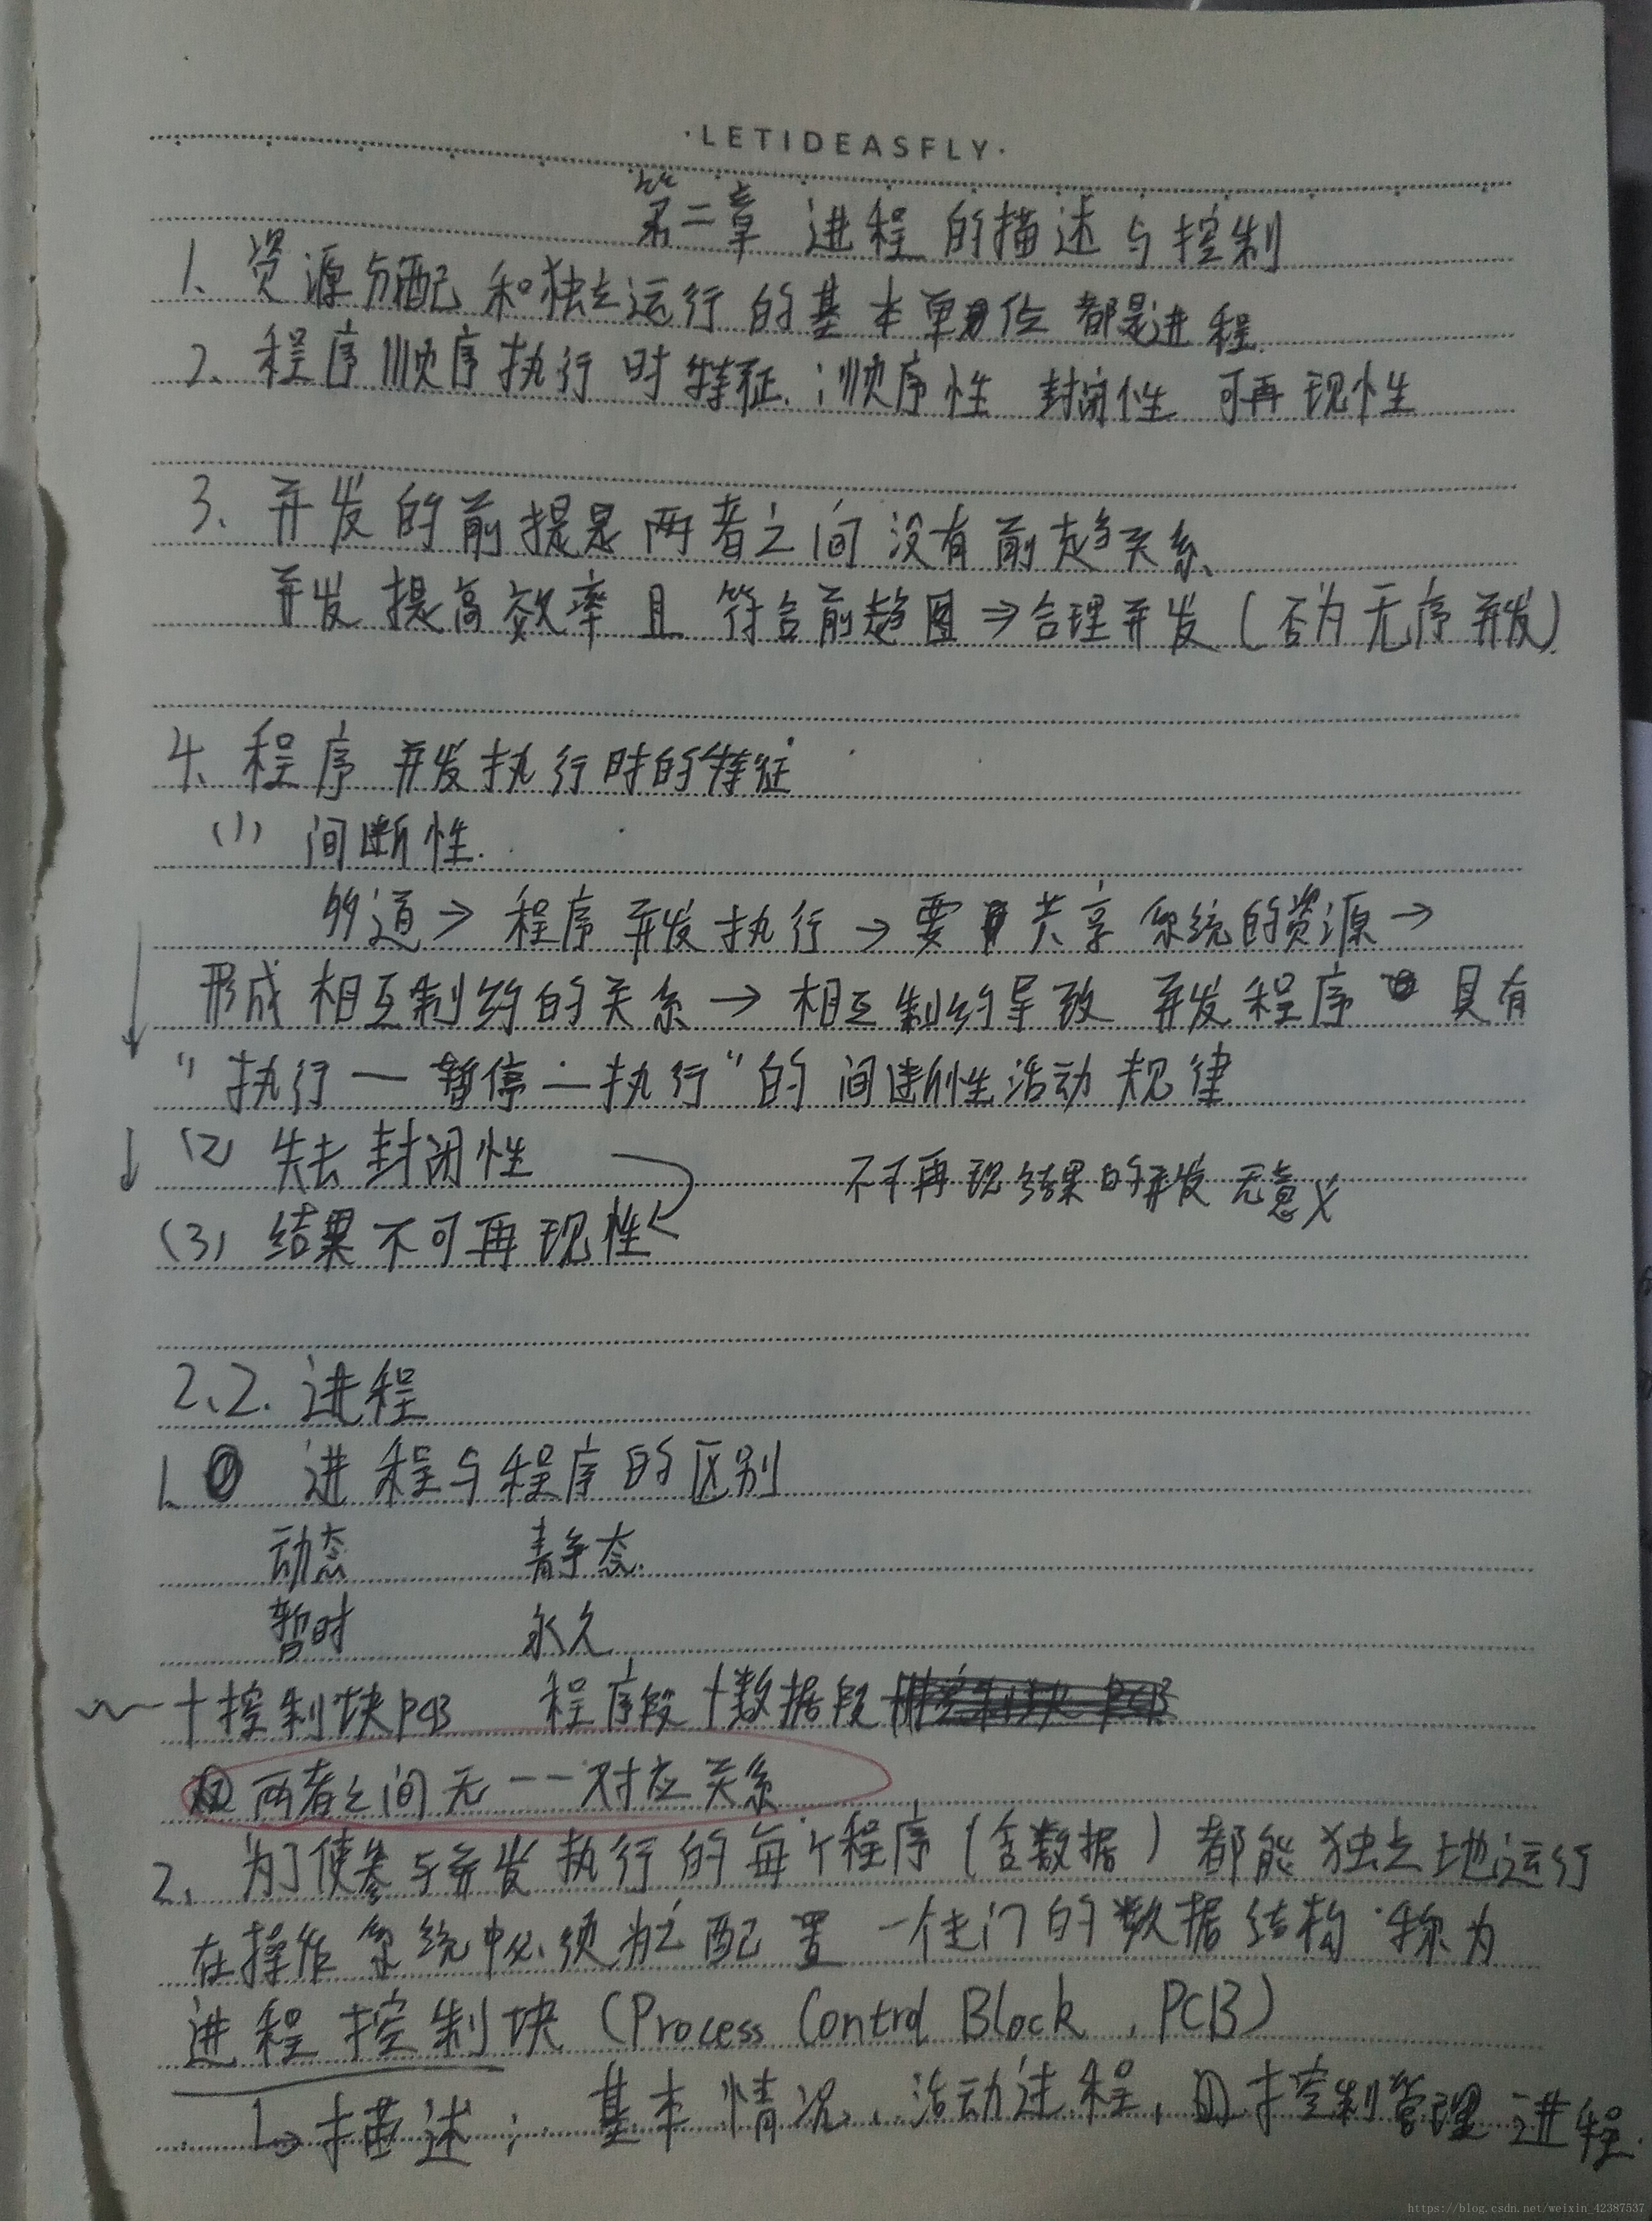 ·LETIDEASFLY·
第二章 进程的描述与控制
1、资源分配和独立运行的基本单位都是进程.
2、程序顺序执行时特征:顺序性 封闭性 可再现性
3、并发的前提是两者之间没有前趋关系、
并发提高效率且符合前趋图⇒合理并发(否为无序并发).
4、程序并发执行时的特征
(1) 间断性.
多道→程序并发执行→要共享系统的资源→
形成相互制约的关系→相互制约导致并发程序具有
"执行—暂停—执行"的间断性活动规律
(2) 失去封闭性
不可再现结果的并发无意义
(3) 结果不可再现性
2、2.进程
1. ① 进程与程序的区别
动态 静态.
暂时 永久
+控制块PCB 程序段+数据段
② 两者之间无一一对应关系
2、为了使参与并发执行的每个程序(含数据)都能独立地运行
在操作系统中必须为之配置一个专门的数据结构·称为
进程控制块(Process Control Block,PCB)
↳描述:基本情况、活动过程,控制管理进程.
https://blog.csdn.net/weixin_42387537